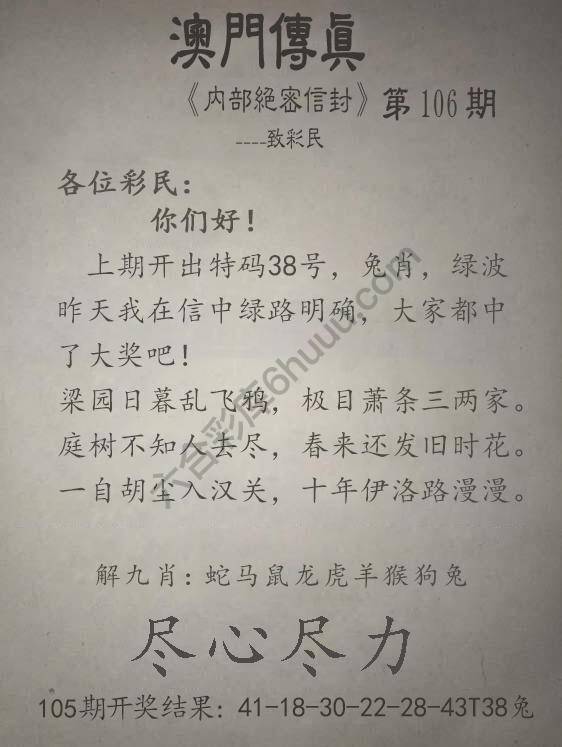 澳門傳眞
《内部絕密信封》第106期
----致彩民
各位彩民：
你们好！
上期开出特码38号，兔肖，绿波
昨天我在信中绿路明确，大家都中
了大奖吧！
梁园日暮乱飞鸦，极目萧条三两家。
庭树不知人去尽，春来还发旧时花。
一自胡尘入汉关，十年伊洛路漫漫。
解九肖：蛇马鼠龙虎羊猴狗兔
尽心尽力
105期开奖结果：41-18-30-22-28-43T38兔
六合彩库6huuu.com